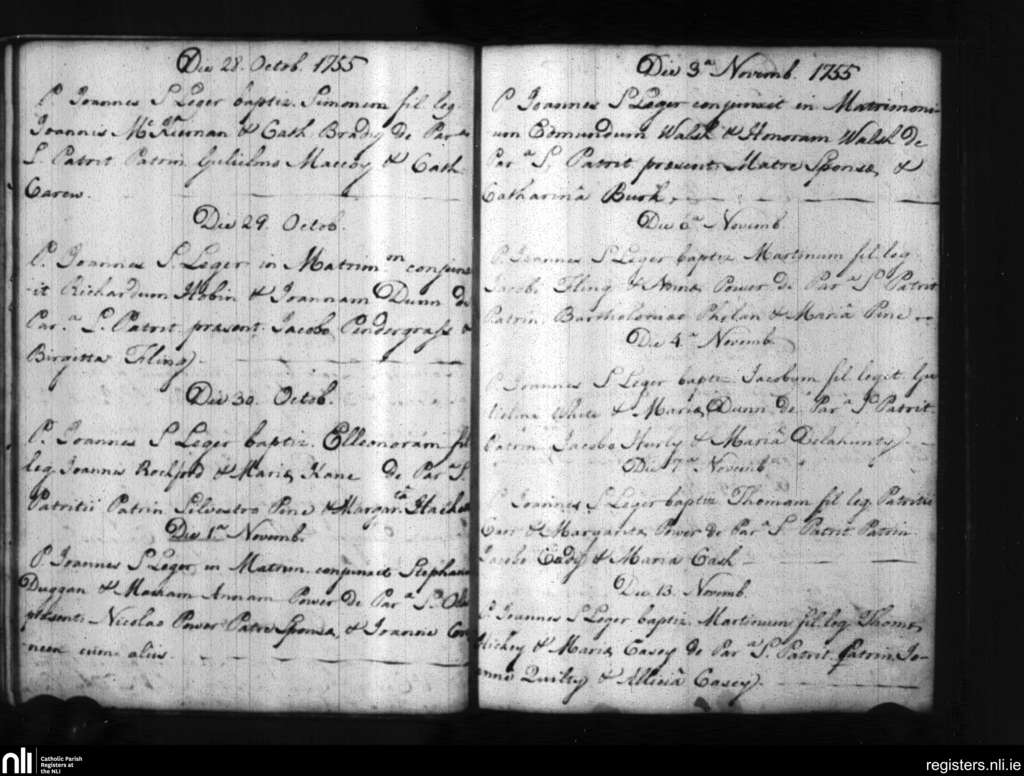 Die 28. Octob. 1755
P. Joannes S Leger baptiz. Simonem fil. leg.
Joannis McKiernan & Cath. Brady de Par.a
S. Patrit. Patrin. Gulielmo Maccoy & Cath.
Carew.
Die 29. Octob.
P. Joannes S. Leger in Matrimon conjunx
-it Richardum Hobin & Joannam Dunn de
Par.a S. Patrit. present. Jacobo Pendergrass &
Birgitta Fling.
Die 30. Octob.
P. Joannes S Leger baptiz. Elleonoram fil
leg. Joannis Rochford & Maria Kane de Par.a S.
Patritii Patrin Silvestro Pine & Margar.ta
Die 1.a Novemb.
P. Joannes S Leger in Matrim. conjunxit Stephan
Duggan & Mariam Annam Power de Par.a S.
present. Nicolao Power Patre Sponsa, & Joanne Con
neen cum aliis.
Die 3.a Novemb. 1755
P. Joannes S Leger conjunxit in Matrimoni
um Edmundum Walsh & Honoram Walsh de
Par.a S. Patrit present. Matre Sponsa, &
Catharina Burk.
Die 6.a Novemb.
P. Joannes S Leger baptiz Martinum fil. leg.
Jacobi Fling & Power de Par.a S Patrit
Patrin. Bartholomao Phelan & Maria Pine
Die 4.a Novemb.
P. Joannes S Leger baptiz. Jacobum fil. legit. Gu
lielmi White & Maria Dunn de Par.a S Patrit.
Patrin Jacobo Hurly & Maria Delahunty
Die 7.a Novemb.
P. Joannes S Leger baptiz. Thomam fil leg. Patritii
Carr & Margarita Power de Par.a S. Patrit Patrin
Jacobo Eady & Maria Cash
Die 13. Novemb.
P. Joannes S Leger baptiz. Martinum fil. leg. Thoma
Hickey & Maria Casey de Par.a S. Patrit. Patrin Jo-
anne Quilty & Allicia Casey.
nli
Catholic Parish
Registers at
the NLI
registers.nli.ie